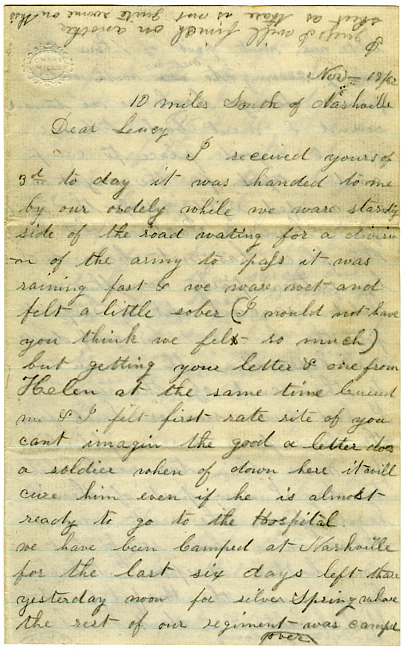 I guess I will finish on another
sheet as there is not quite room on this
Nov - 18/62
10 miles South of Nashville
Dear Lucy
I received yours of
3rd to day it was handed to me
by our ordely while we ware standing
side of the road wating for a divisi
n of the army to pass it was
raining fast & we ware wet and
felt a little sober (I would not have
you think we felt so much)
but getting your letter & one from
Helen at the same time cured
me & I felt first rate rite of you
cant imagin the good a letter does
a soldier when of down here it will
cure him even if he is almost
ready to go to the Hospital
we have been Camped at Nashville
for the last six days left thare
yesterday noon for silver Spring whare
the rest of our regiment was camped
over